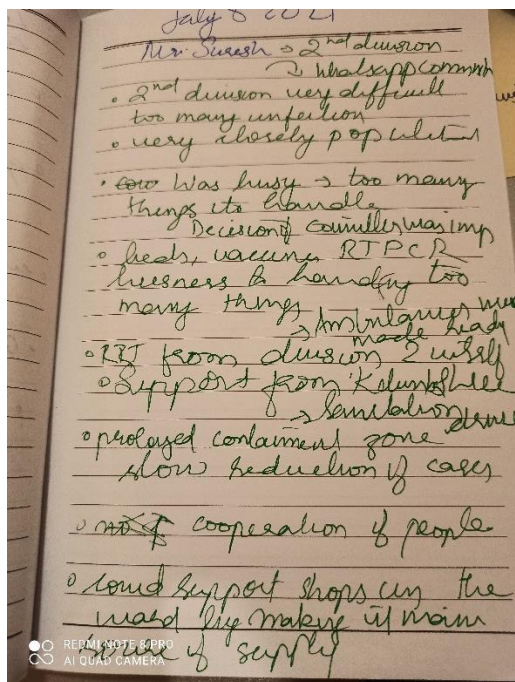 July 8 2021
Mr. Suresh → 2nd division
→ Whatsapp
• 2nd division very difficult
too many infection
• very closely populated
• Was busy → too many
things to handle
Decision of Councillor was imp
• beds, vaccine, RTPCR
too
many things
→ Ambulances were
made ready
• RRT from division 2 itself
• Support from Kudumbshree
→ Sanitation
• prolonged containment zone
slow reduction of cases
• cooperation of people
• could support shops in the
ward by making it main
source of supply
REDMI NOTE 8 PRO
AI QUAD CAMERA